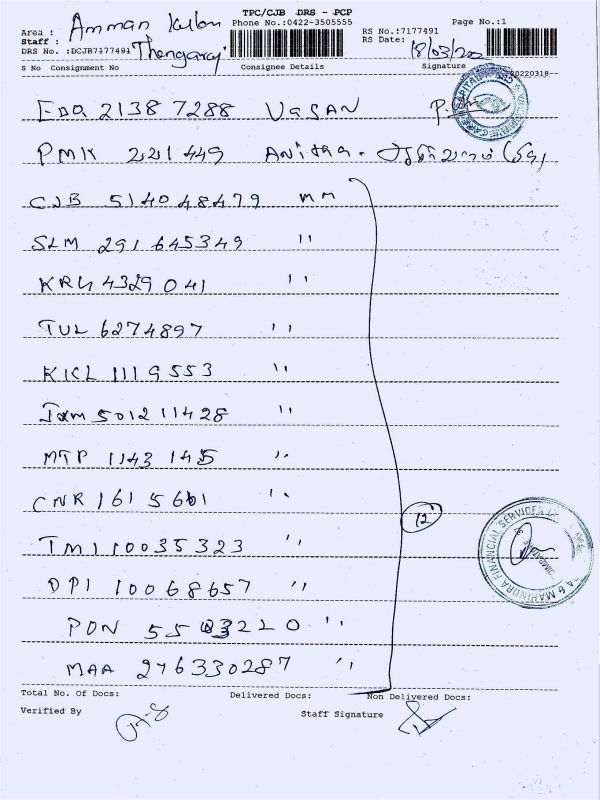 TPC/CJB DRS - PCP
Area : Amman Kulam
Phone No.:0422-3505555
Page No.:1
Staff : Thangaraj
RS No.:7177491
RS Date: 18/03/202
DRS No. :DCJB7177491
20220318--
S No Consignment No Consignee Details Signature
EDQ 2138 7288 VASAN
PMK 221449 ANITHA -
CJB 514048479 MM
SLM 291645349 "
KRU 4329041 "
TUL 6274897 "
KKL 1119553 "
501211428 "
MTP 1143145 "
CNR 1615661 "
12
TMI 10035323 "
DPI 10068657 "
PON "
MAA 276330287 "
MAHINDRA FINANCIAL SERVICES
Total No. Of Docs: Delivered Docs: Non Delivered Docs:
Verified By Staff Signature